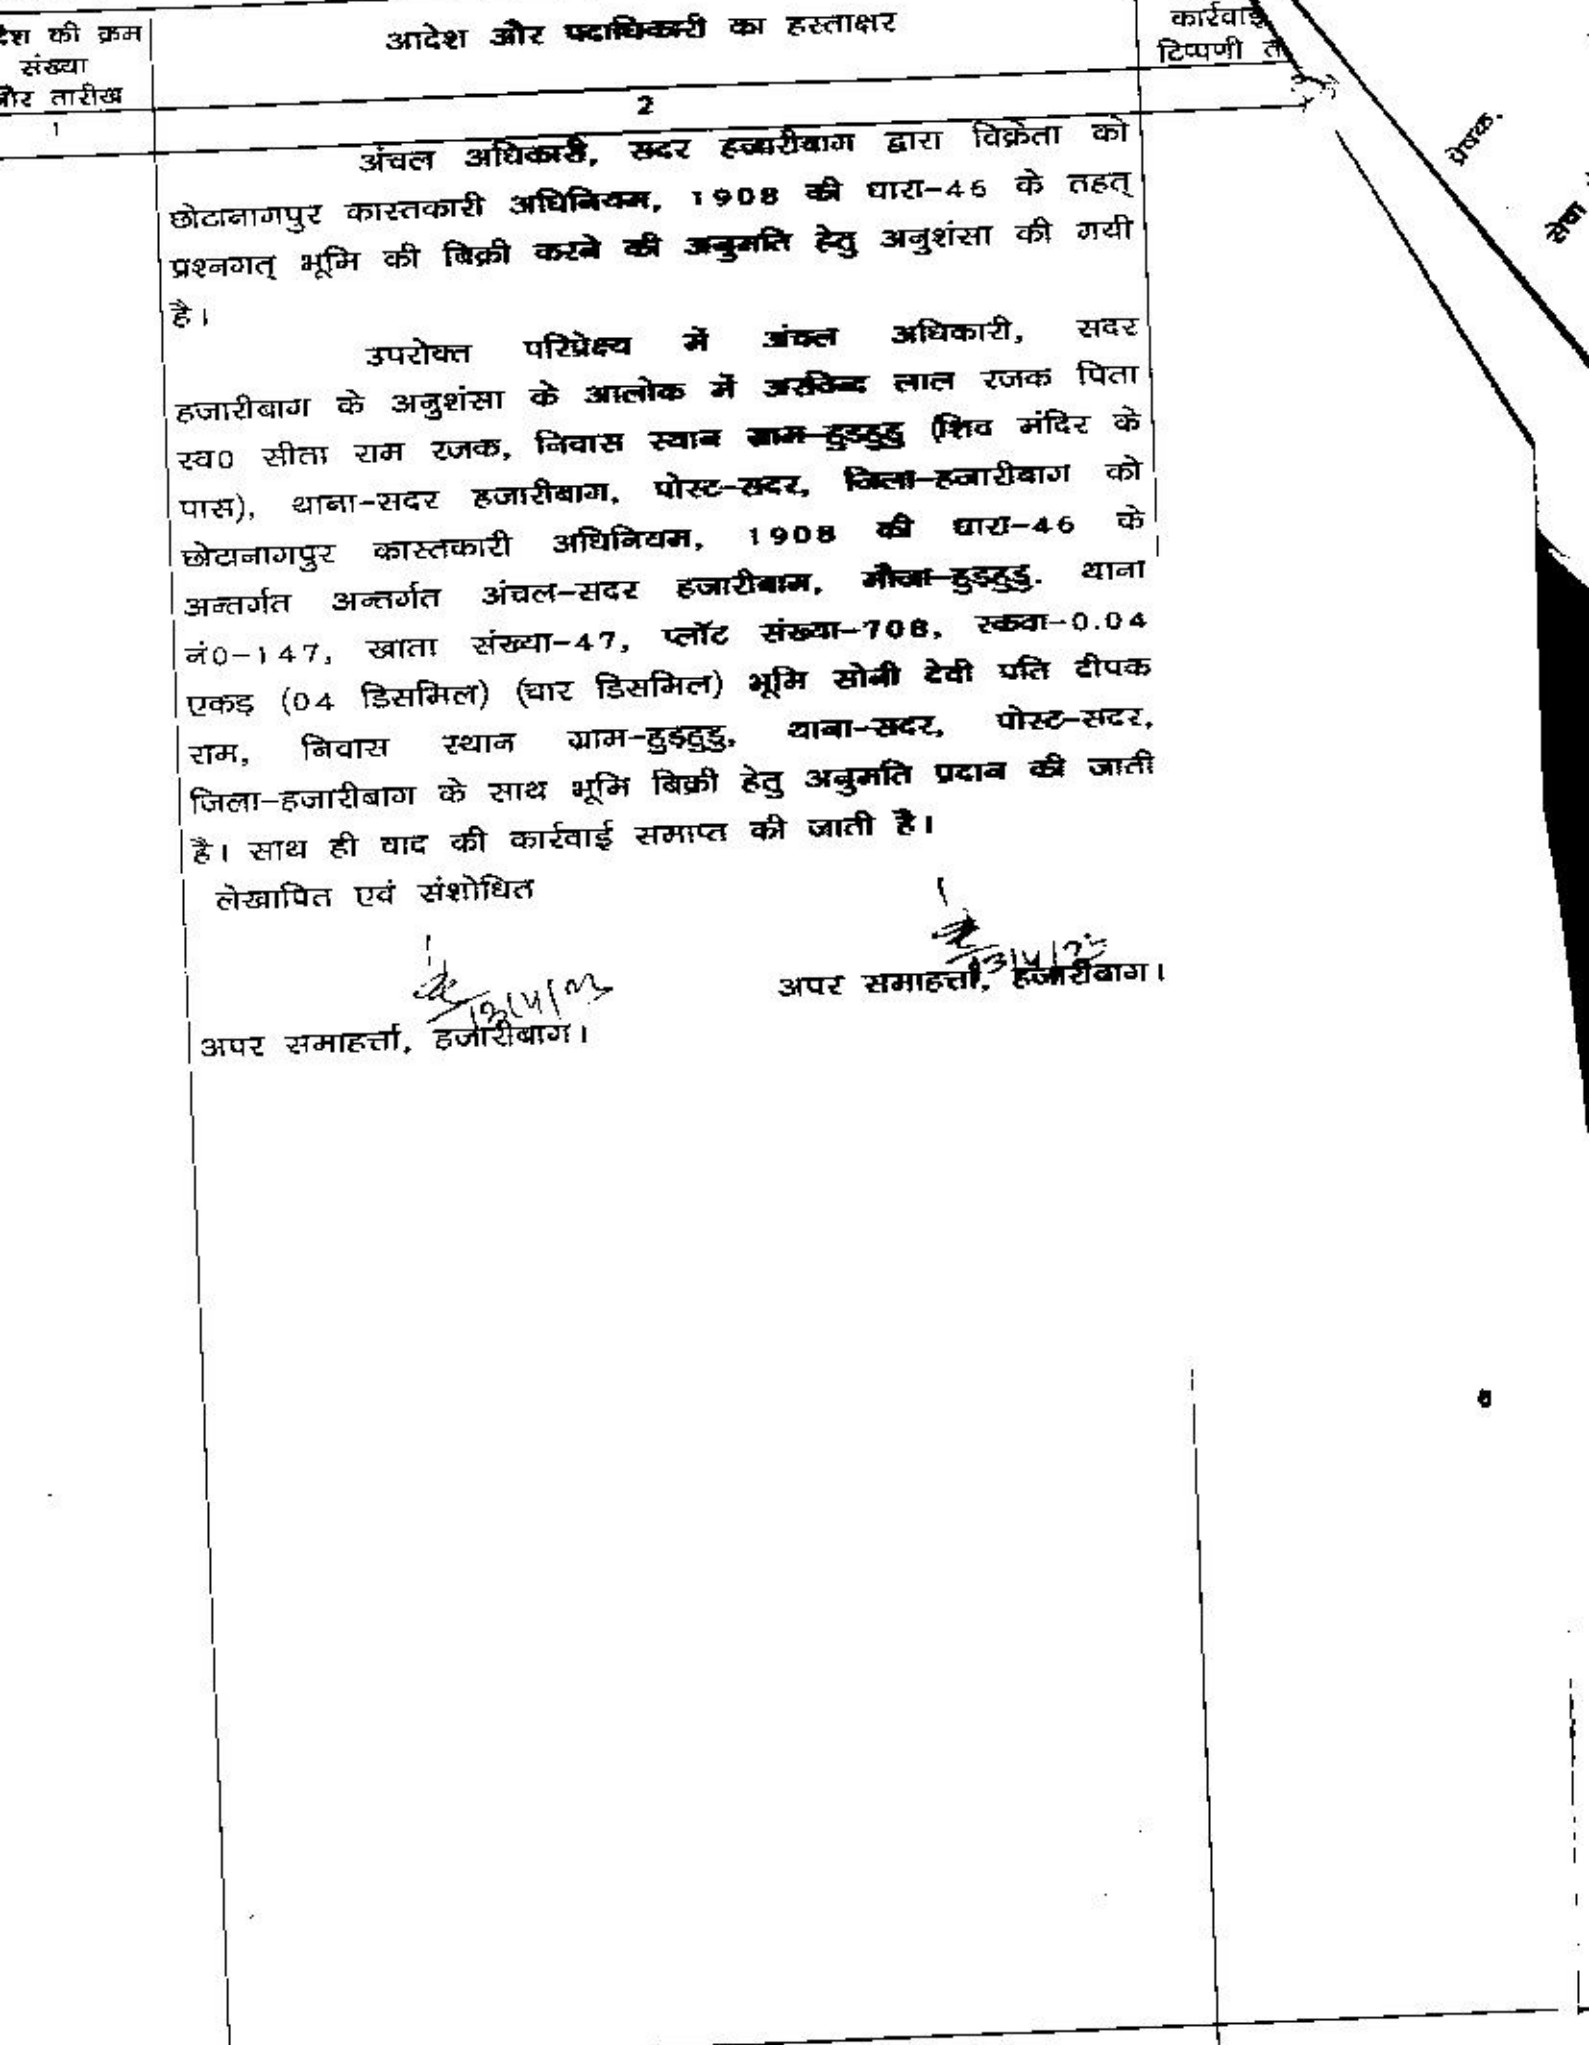 देश की क्रम
संख्या
और तारीख
आदेश और पदाधिकारी का हस्ताक्षर
कार्रवाई
टिप्पणी
1
2
अंचल अधिकारी, सदर हजारीबाग द्वारा विक्रेता को
छोटानागपुर कास्तकारी अधिनियम, 1908 की धारा-46 के तहत्
प्रश्नगत् भूमि की बिक्री करने की अनुमति हेतु अनुशंसा की गयी
है।
उपरोक्त परिप्रेक्ष्य में अंचल अधिकारी, सदर
हजारीबाग के अनुशंसा के आलोक में अरविन्द लाल रजक पिता
स्व0 सीता राम रजक, निवास स्थान ग्राम-हुडहुडु (शिव मंदिर के
पास), थाना-सदर हजारीबाग, पोस्ट-सदर, जिला-हजारीबाग को
छोटानागपुर कास्तकारी अधिनियम, 1908 की धारा-46 के
अन्तर्गत अन्तर्गत अंचल-सदर हजारीबाग, मौजा-हुडहुडु, थाना
नं0-147, खाता संख्या-47, प्लॉट संख्या-708, रकवा-0.04
एकड़ (04 डिसमिल) (चार डिसमिल) भूमि सोनी देवी पति दीपक
राम, निवास स्थान ग्राम-हुडहुडु, थाना-सदर, पोस्ट-सदर,
जिला-हजारीबाग के साथ भूमि बिक्री हेतु अनुमति प्रदान की जाती
है। साथ ही वाद की कार्रवाई समाप्त की जाती है।
लेखापित एवं संशोधित
13/4/23
अपर समाहर्त्ता, हजारीबाग।
13/4/23
अपर समाहर्त्ता, हजारीबाग।
प्रेषक,
सेवा